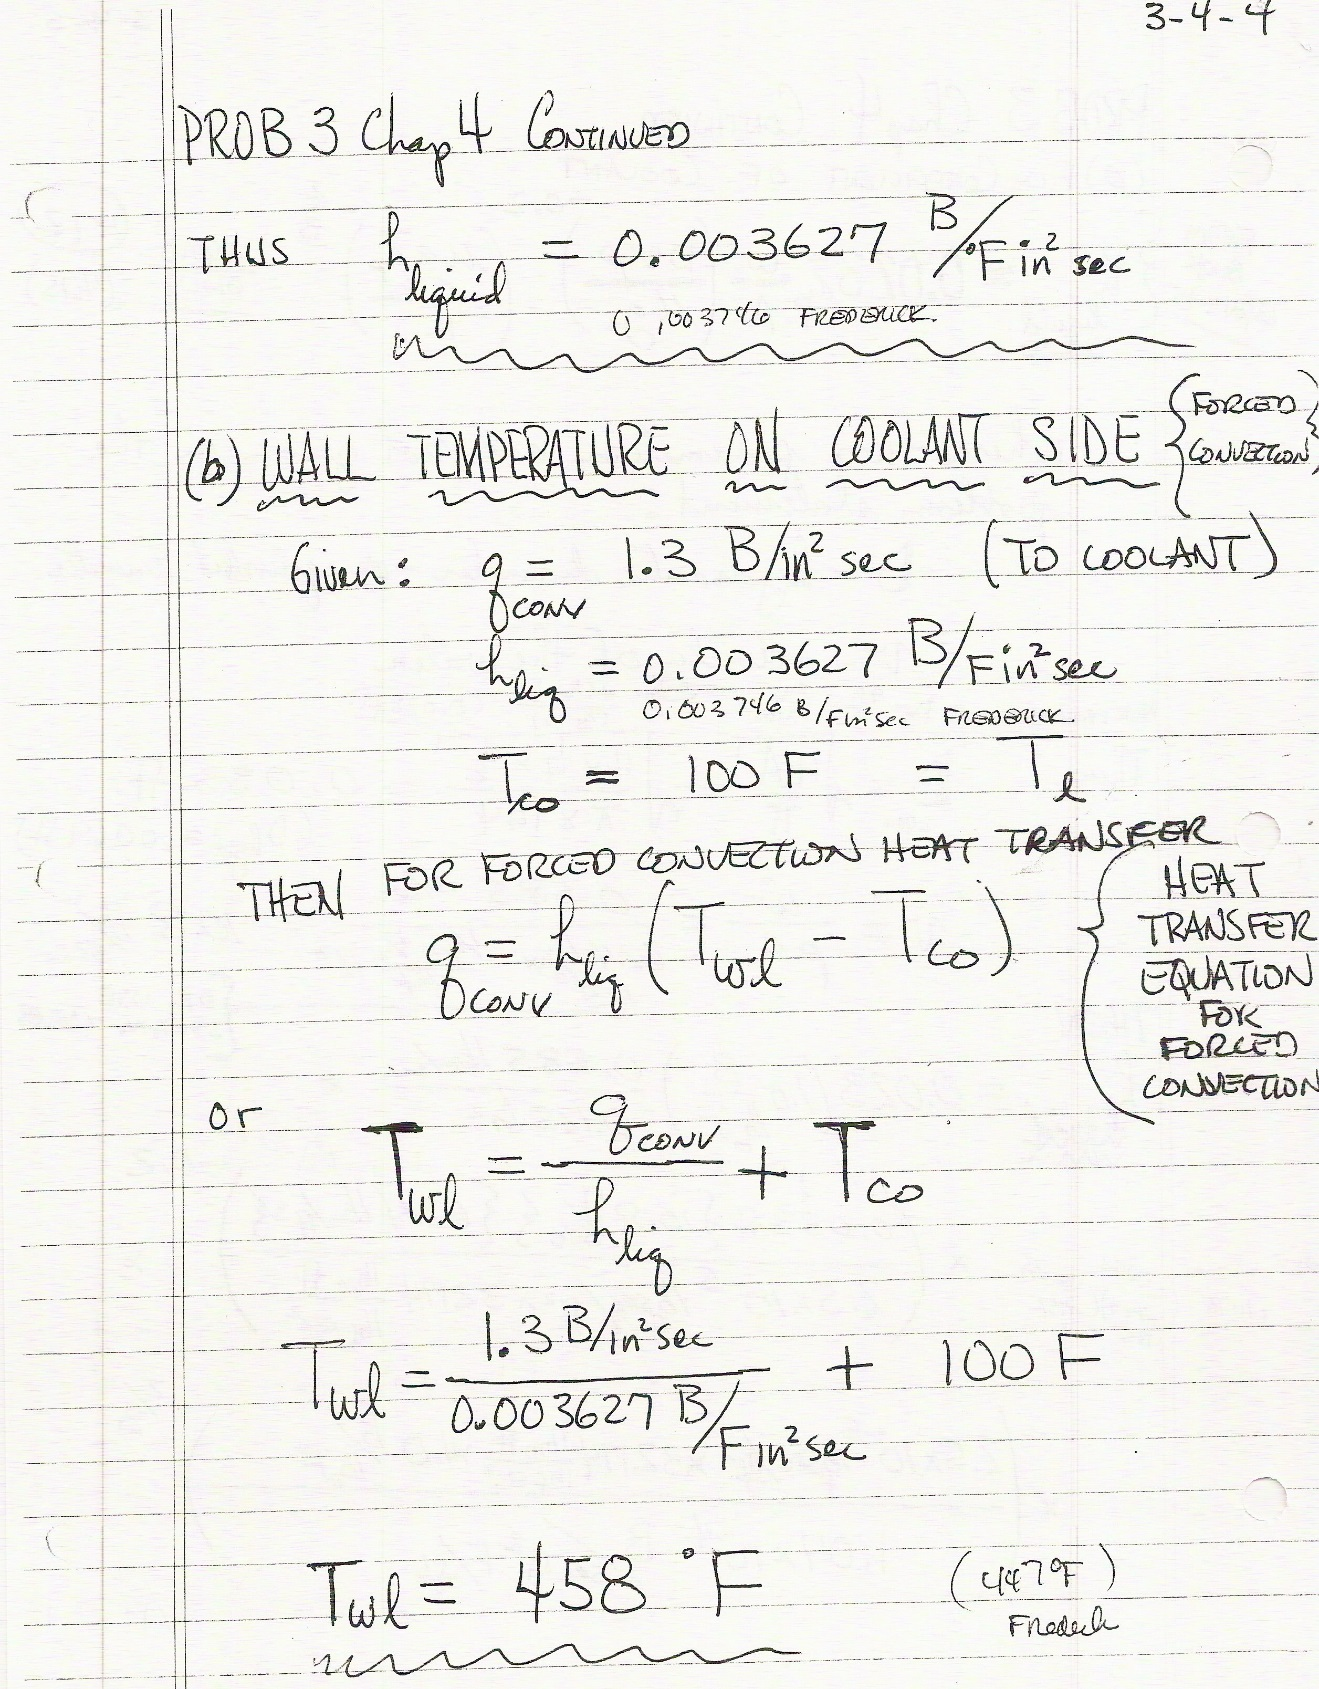 3-4-4
PROB 3 Chap 4 CONTINUED
THUS h liquid = 0.003627 B/°F in² sec
0.003746 FREDERICK.
(b) WALL TEMPERATURE ON COOLANT SIDE {FORCED CONVECTION}
Given: qCONV = 1.3 B/in² sec (TO COOLANT)
hliq = 0.003627 B/F in² sec
0.003746 B/F in² sec FREDERICK
Tco = 100 F = Tl
THEN FOR FORCED CONVECTION HEAT TRANSFER
qCONV = hliq (Twl - Tco) { HEAT
TRANSFER
EQUATION
FOR
FORCED
CONVECTION
or Twl = qCONV / hliq + Tco
Twl = 1.3 B/in² sec / 0.003627 B/F in² sec + 100 F
Twl = 458 °F (447°F)
Frederick